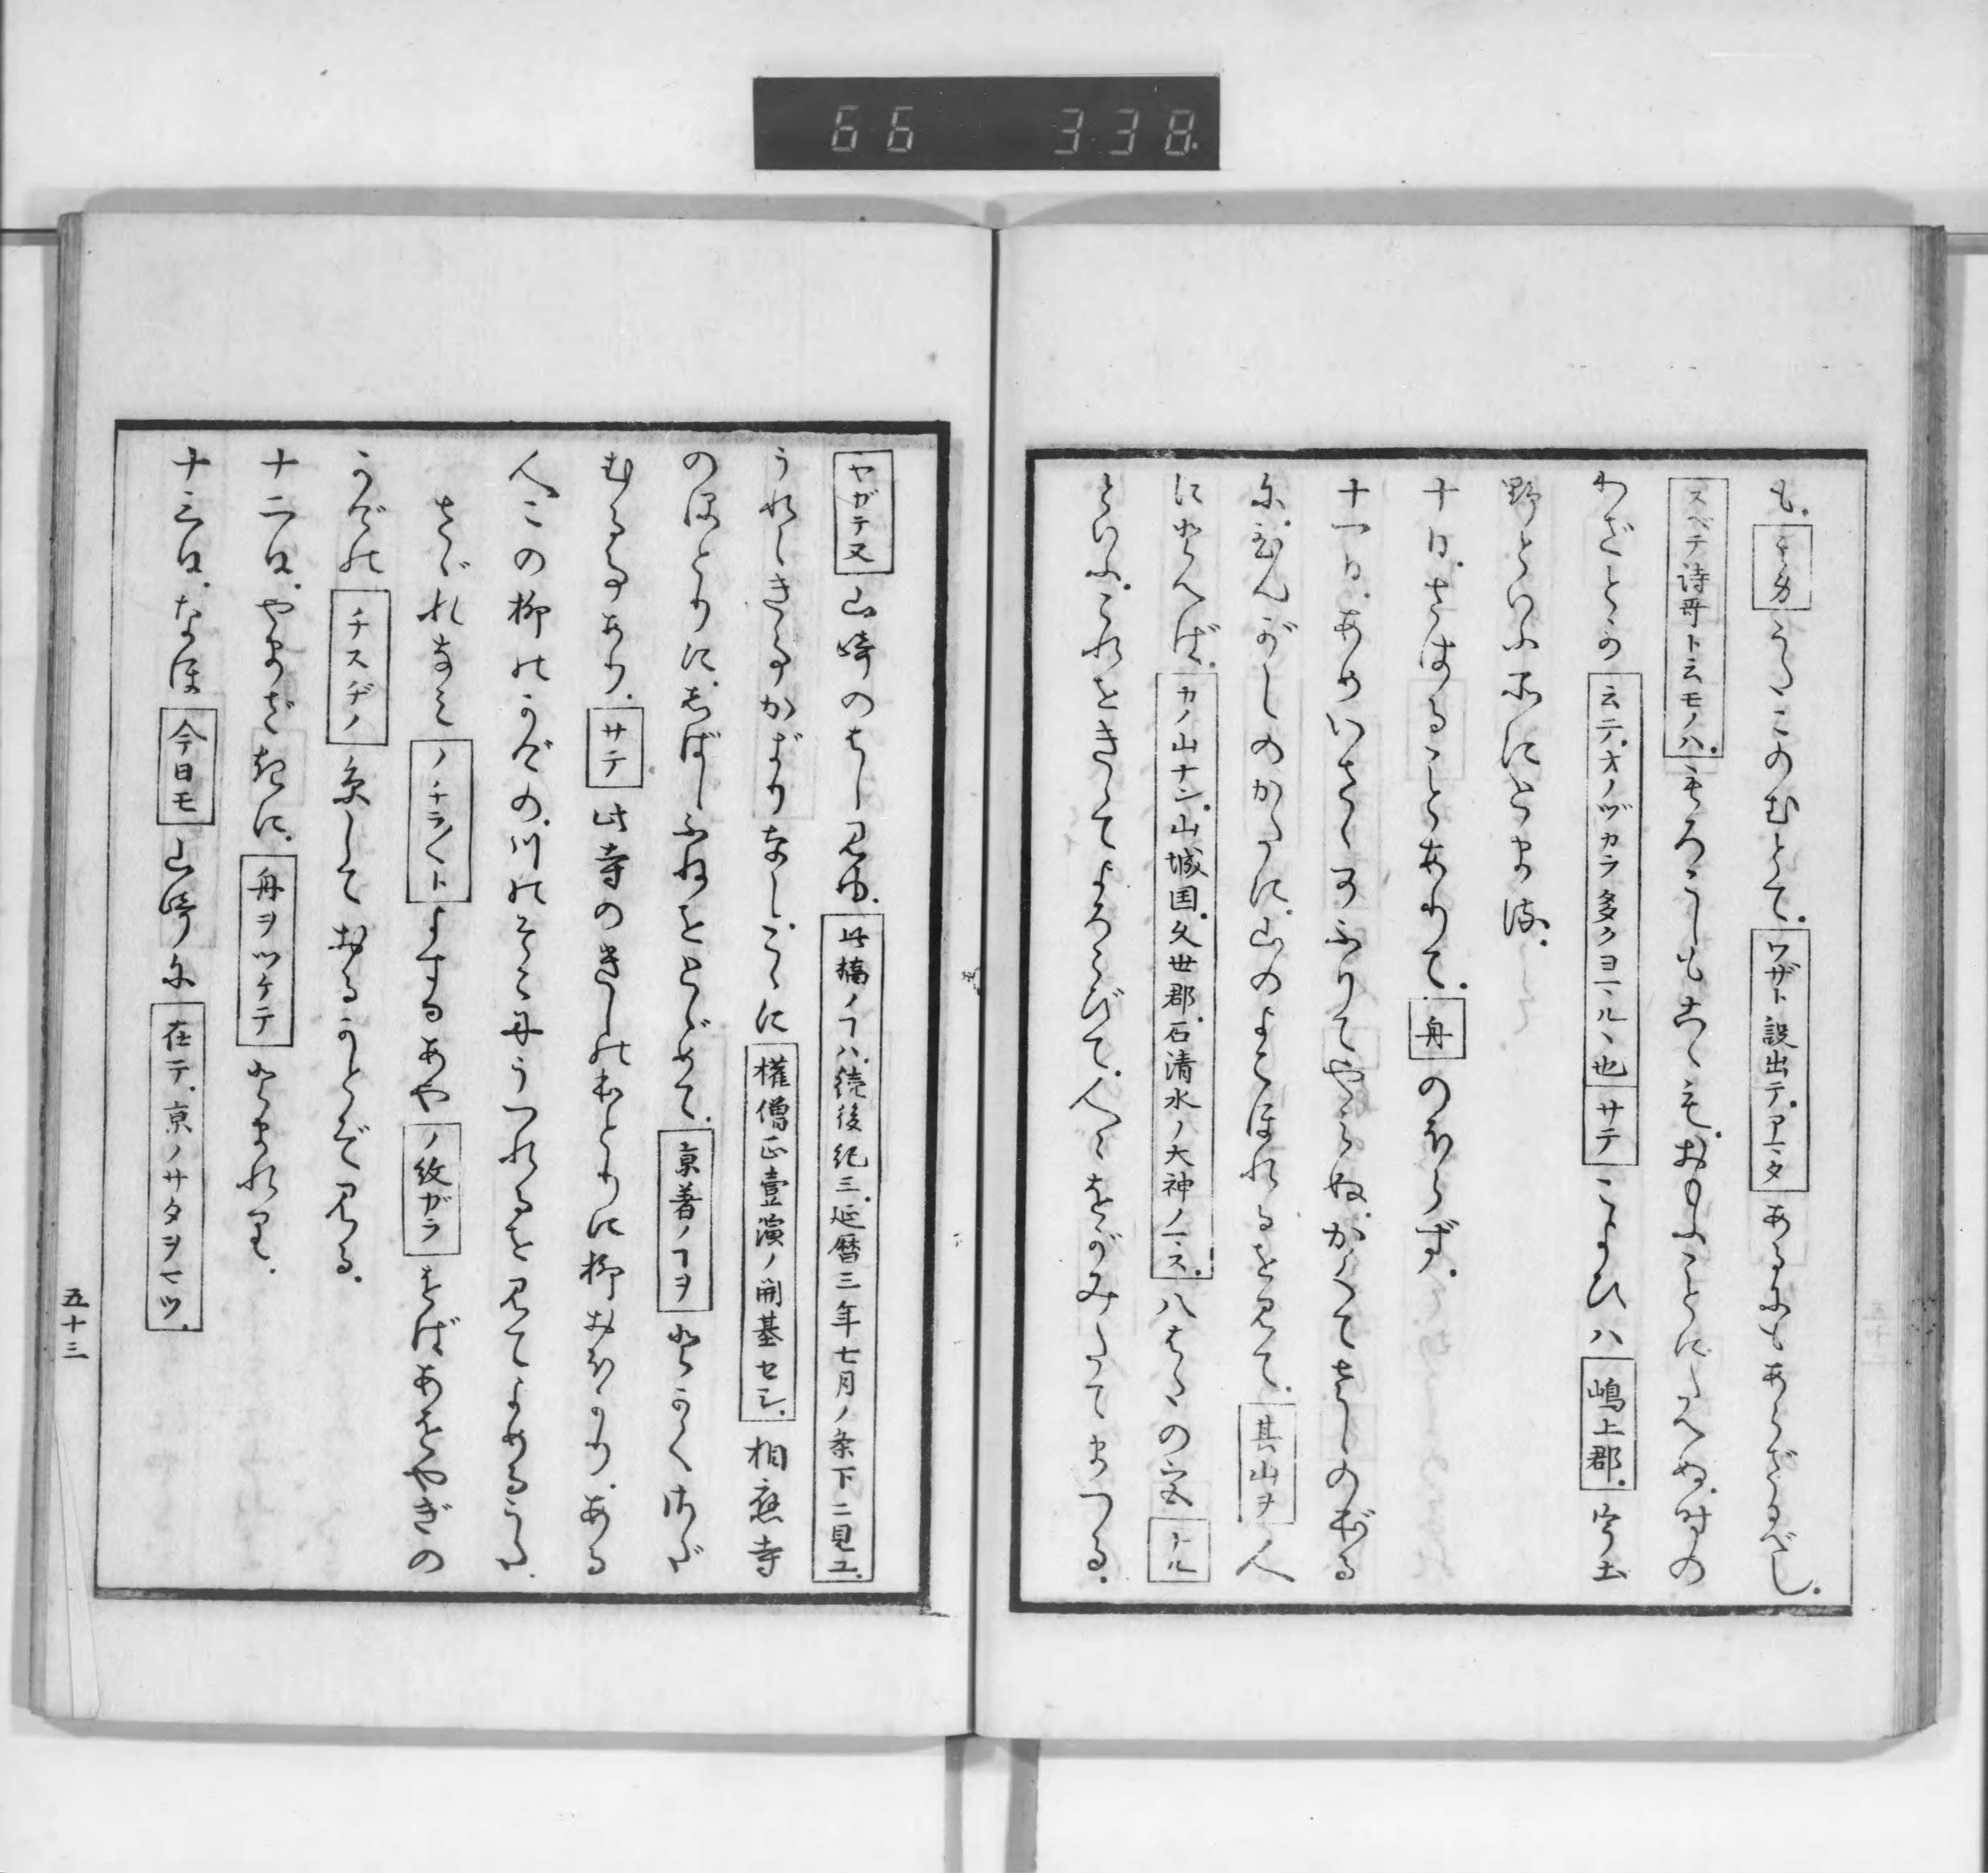 66 338
も。うたこのむとて。ワザト設出テ。アマタあるにもあらざるべし。
スベテ詩哥ト云モノハ。もろこしもこゝも。おもふことにたへぬ時の
わざとか云テ。オノヅカラ多クヨマルヽ也サテこよひハ嶋上郡。うど
野といふ所にとまる。
十日。さはることありて。舟のぼらず。
十一日。あめいさゝかふりてやみぬ。かくてさしのぼる
に。ひんがしのかたに。山のよこほれるを見て。其山ヲ人
にとへば。カノ山ナン。山城国。久世郡。石清水ノ大神ノマス。八はたの宮トル
といふ。これをきゝてよろこびて。人々をがみたてまつる。
ヤガテ又山崎のはし見ゆ。此橋ノヿハ。続後紀三。延暦三年七月ノ条下ニ見ユ。
うれしきことかぎりなし。こゝに権僧正壹演ノ開基セシ。相應寺
のほとりに。しばしふねをとゞめて。京着ノヿヲとかくさだ
むることあり。サテ此寺のきしのほとりに柳おほかり。ある
人この柳のかげの。川のそこにうつれるを見てよめるうた。
さゞれなみノチラ〳〵トよするあやノ紋ガラをばあをやぎの
かげのチスヂノ糸しておるかとぞ見る。
十二日。やまざきに。舟ヲツケテとまれり。
十三日。なほ今日モ山崎に在テ。京ノサタヲマツ。
五十三